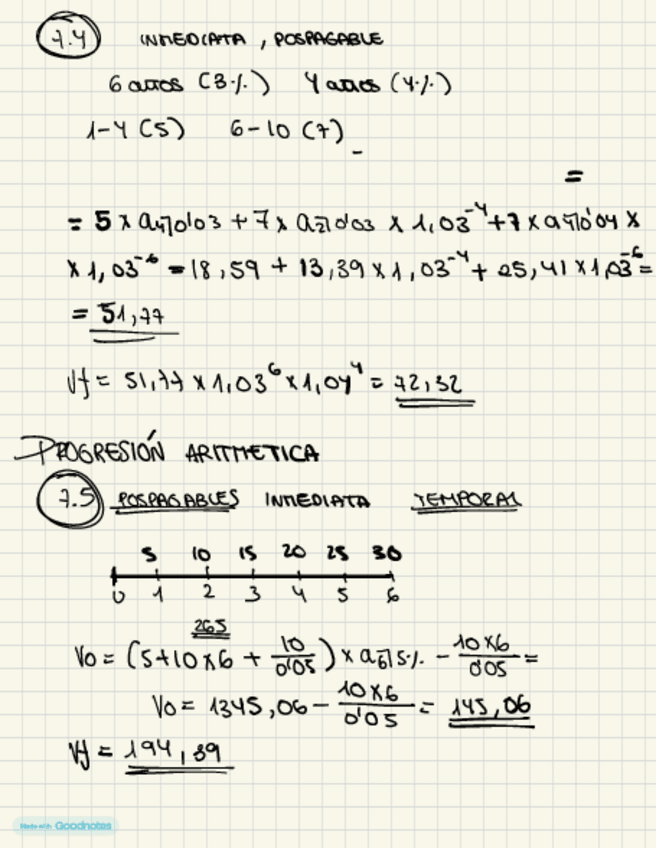 7.4 INMEDIATA, POSPAGABLE
6 años (3%) 4 años (4%)
1-4 (5) 6-10 (7)
-
=
= 5 x a4̅|0'03 + 7 x a2̅|0'03 x 1,03⁻⁴ + 7 x a4̅|0'04 x
x 1,03⁻⁶ = 18,59 + 13,39 x 1,03⁻⁴ + 25,41 x 1,03⁻⁶ =
= 51,77
Vf = 51,77 x 1,03⁶ x 1,04⁴ = 72,32
PROGRESIÓN ARITMETICA
7.5 POSPAGABLES INMEDIATA TEMPORAL
5 10 15 20 25 30
0 1 2 3 4 5 6
265
Vo = (5+10x6 + 10/0'05) x a6̅|5% - 10x6/0'05 =
Vo = 1345,06 - 10x6/0'05 = 145,06
Vf = 194,39
Made with Goodnotes